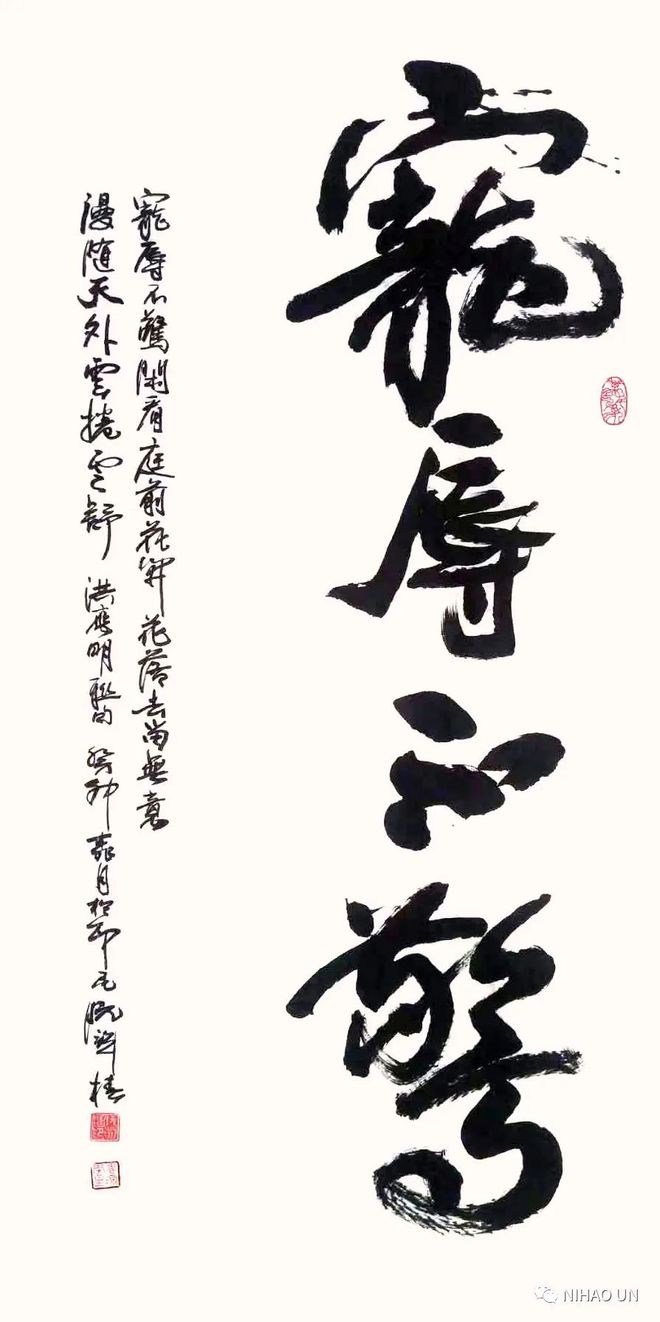 寵辱不驚
寵辱不驚閑看庭前花開花落去留無意
漫隨天外雲捲雲舒 洪應明聯句 癸卯
NIHAO UN